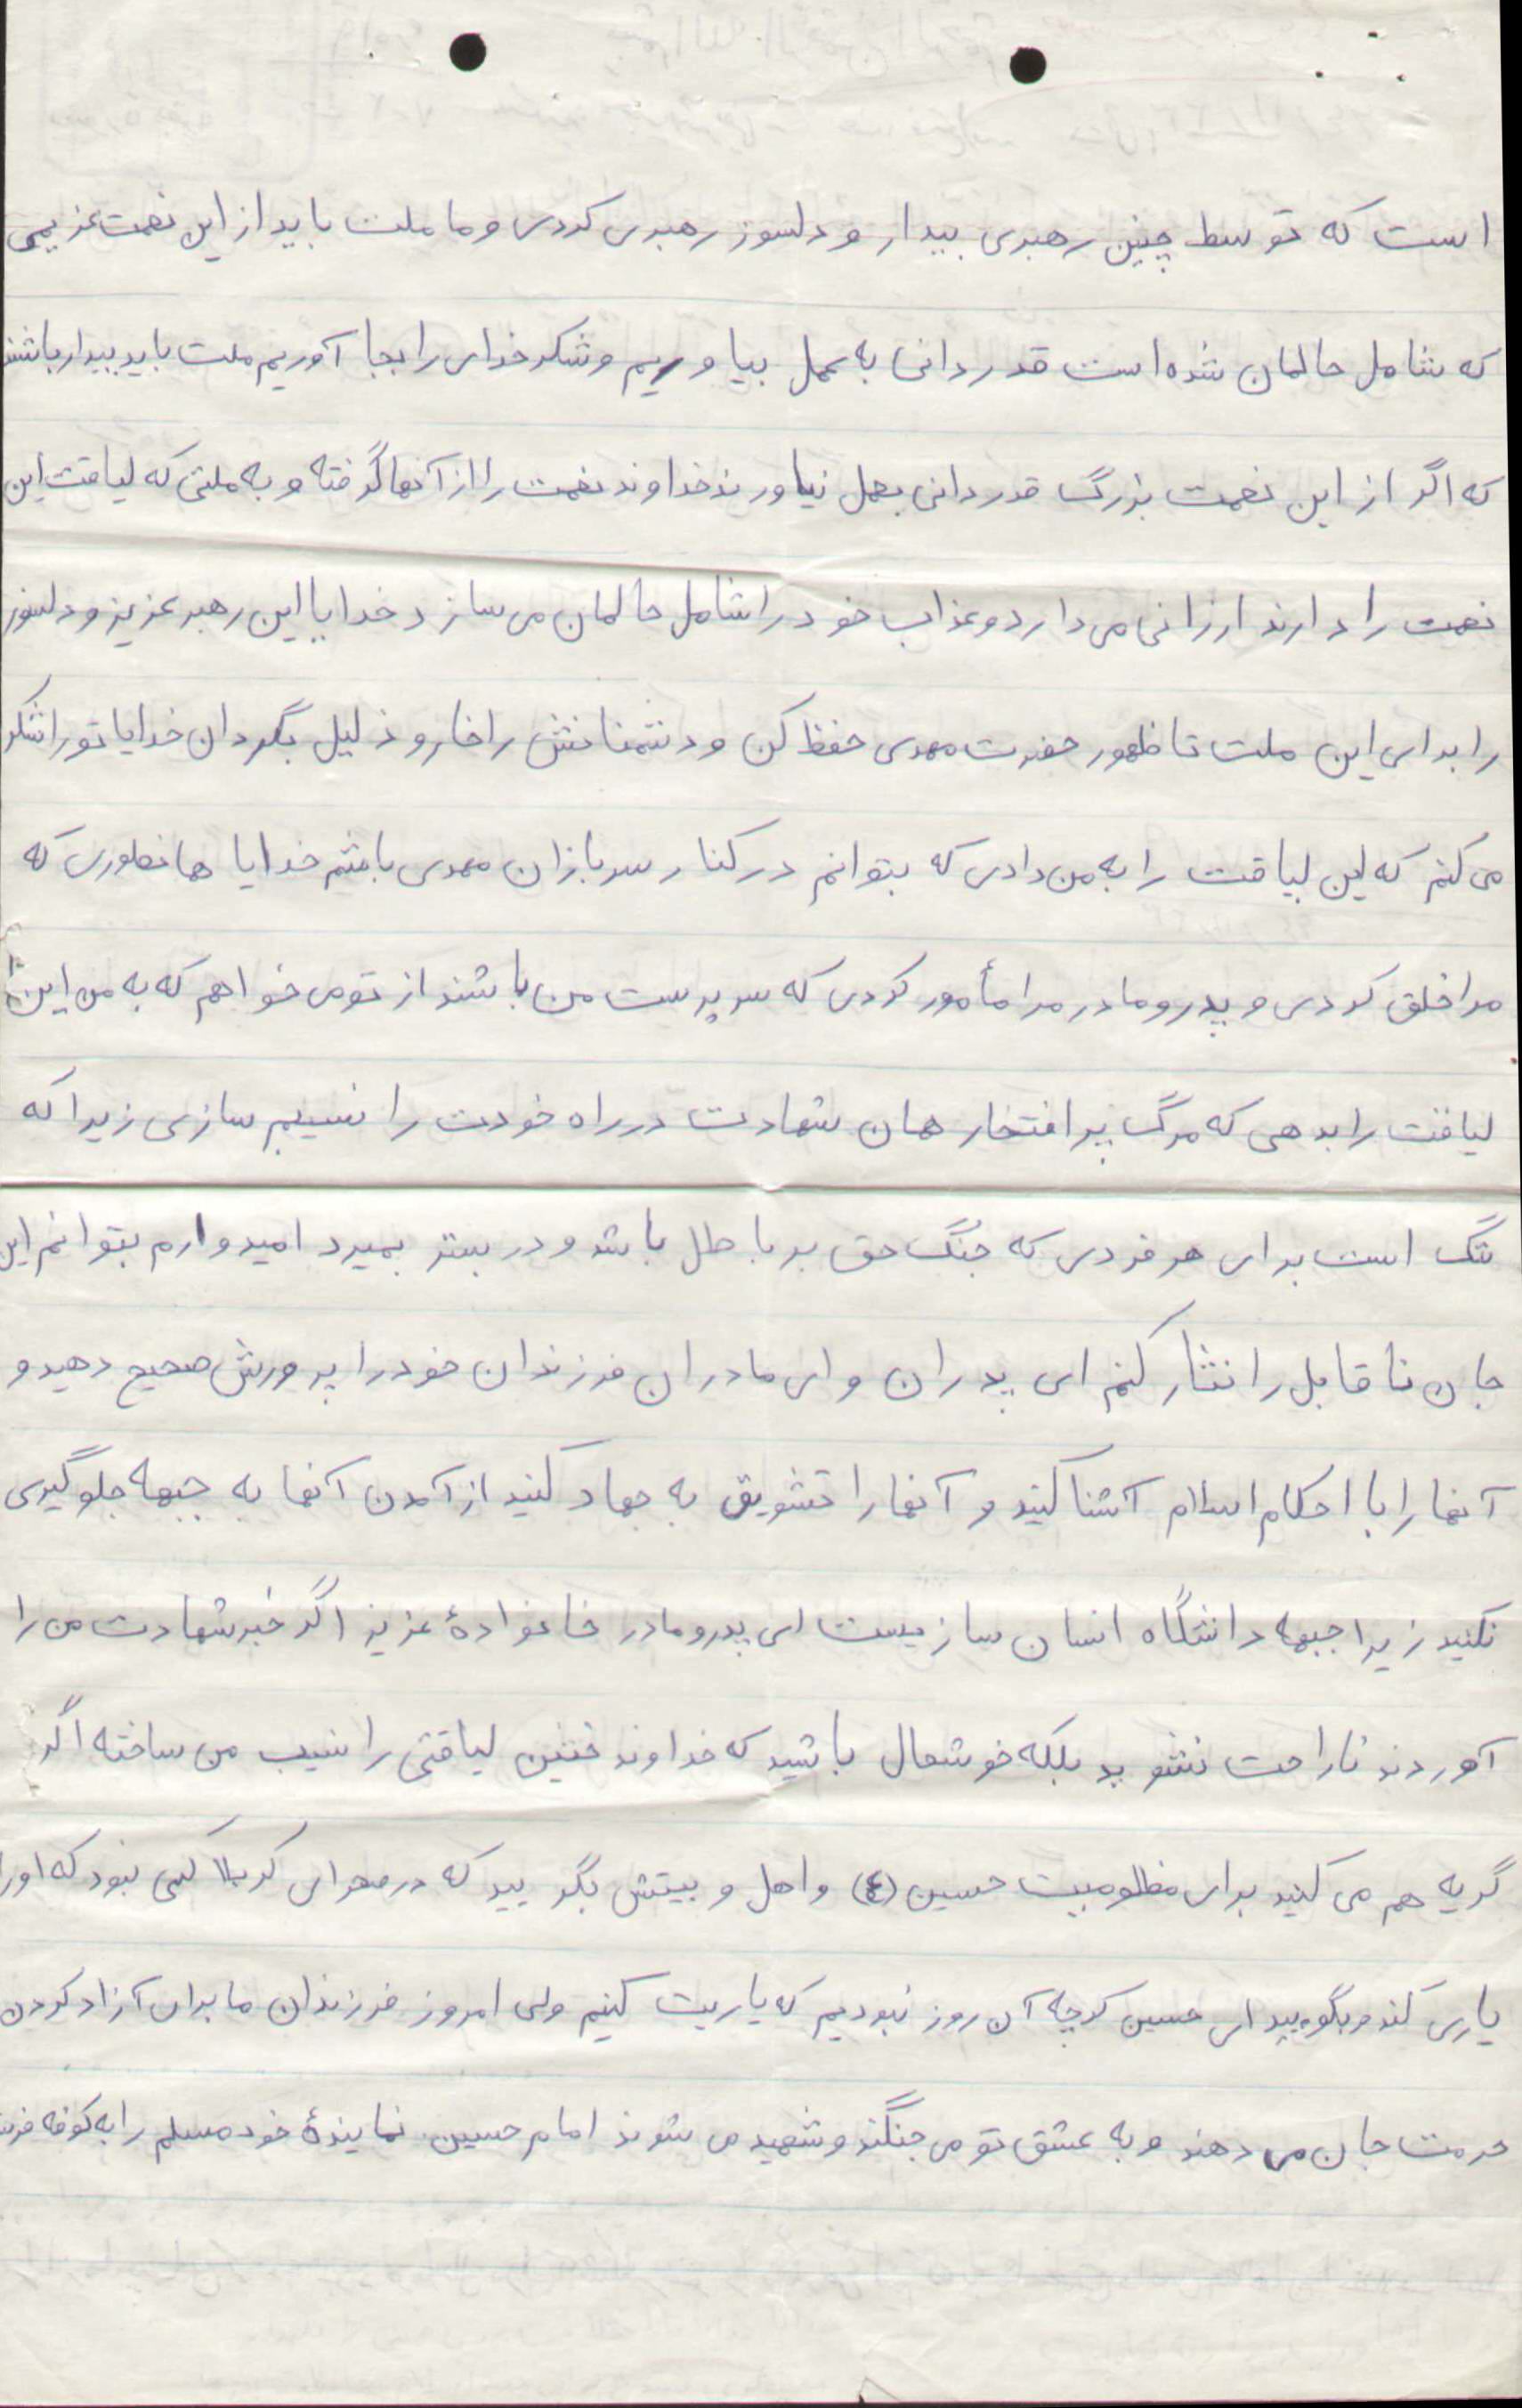 است که توسط چنین رهبری بیدار و دلسوز رهبری کردی و ما ملت باید از این نعمت عزیمی
که شامل حالمان شده است قدردانی به عمل بیاوریم و شکر خدای را بجا آوریم ملت باید بیدار باشند
که اگر از این نعمت بزرگ قدردانی بعمل نیاورند خداوند نعمت را از آنها گرفته و به ملتی که لیاقت این
نعمت را دارند ارزانی می دارد و عذاب خود را شامل حالمان می سازد خدایا این رهبر عزیز و دلسوز
را برای این ملت تا ظهور حضرت مهدی حفظ کن و دشمنانش را خار و ذلیل بگردان خدایا تو را شکر
می کنم که این لیاقت را به من دادی که بتوانم در کنار سربازان مهدی باشم خدایا همانطوری که
مرا خلق کردی و پدر و مادر مرا مأمور کردی که سرپرست من باشند از تو می خواهم که به من این
لیاقت را بدهی که مرگ پر افتخار همان شهادت در راه خودت را نسیبم سازی زیرا که
ننگ است برای هر فردی که جنگ حق بر باطل باشد و در بستر بمیرد امیدوارم بتوانم این
جان ناقابل را نثار کنم ای پدران و ای مادران فرزندان خود را پرورش صحیح دهید و
آنها را با احکام اسلام آشنا کنید و آنها را تشویق به جهاد کنید از آمدن آنها به جبهه جلوگیری
نکنید زیرا جبهه دانشگاه انسان سازیست ای پدر و مادر خانوادهٔ عزیز اگر خبر شهادت من را
آوردند ناراحت نشوید بلکه خوشحال باشید که خداوند چنین لیاقتی را نسیب من ساخته اگر
گریه هم می کنید برای مظلومیت حسین (ع) و اهل و بیتش بگریید که در صحرای کربلا کسی نبود که او را
یاری کند و بگویید ای حسین گرچه آن روز نبودیم که یاریت کنیم ولی امروز فرزندان ما برای آزاد کردن
حرمت جان می دهند و به عشق تو می جنگند و شهید می شوند امام حسین نمایندهٔ خود مسلم را به کوفه